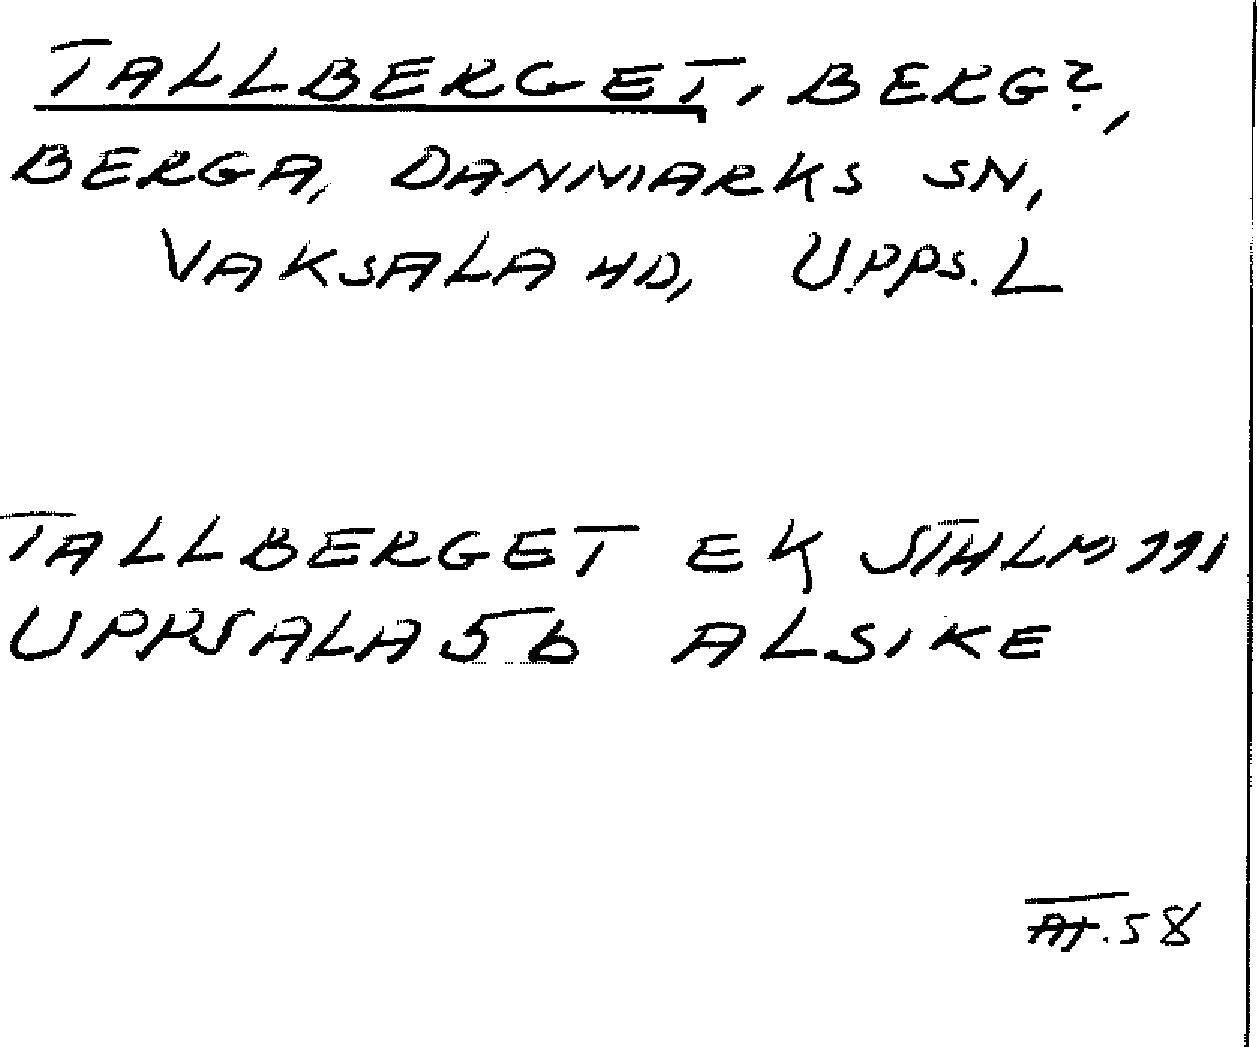 TALLBERGET, BERG?,
BERGA, DANMARKS SN,
VAKSALA HD, UPPS. L
TALLBERGET EK STHLM 991
UPPSALA 56 ALSIKE
58